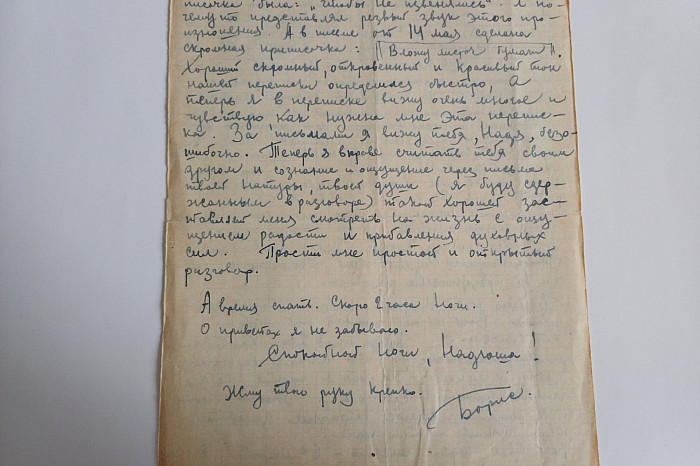 писочка была: „Чтобы не извенялись". А по-
чему-то представлял резвый звук этого про-
изношения. А в письме от 14 мая сделана
скромная приписочка: „Вложу листоч бумаги".
Хороший скромный, откровенный и красивый тон
нашей переписки определился быстро, а
теперь я в переписке вижу очень многое и
чувствую, как нужна мне эта перепис-
ка. За письмами я вижу тебя, Надя, безо-
шибочно. Теперь я вправе считать тебя своим
другом и сознание и ощущение через письма
твоей натуры, твоей души (я буду сдер-
жанным в разговоре) такой хорошей зас-
тавляет меня смотреть на жизнь с ощу-
щением радости и прибавления духовных
сил. Прости мне простой и открытый
разговор.
А время спать. Скоро 2 часа ночи.
О приветах я не забываю.
Спокойной ночи, Надюша!
Жму твою руку крепко.
Борис.